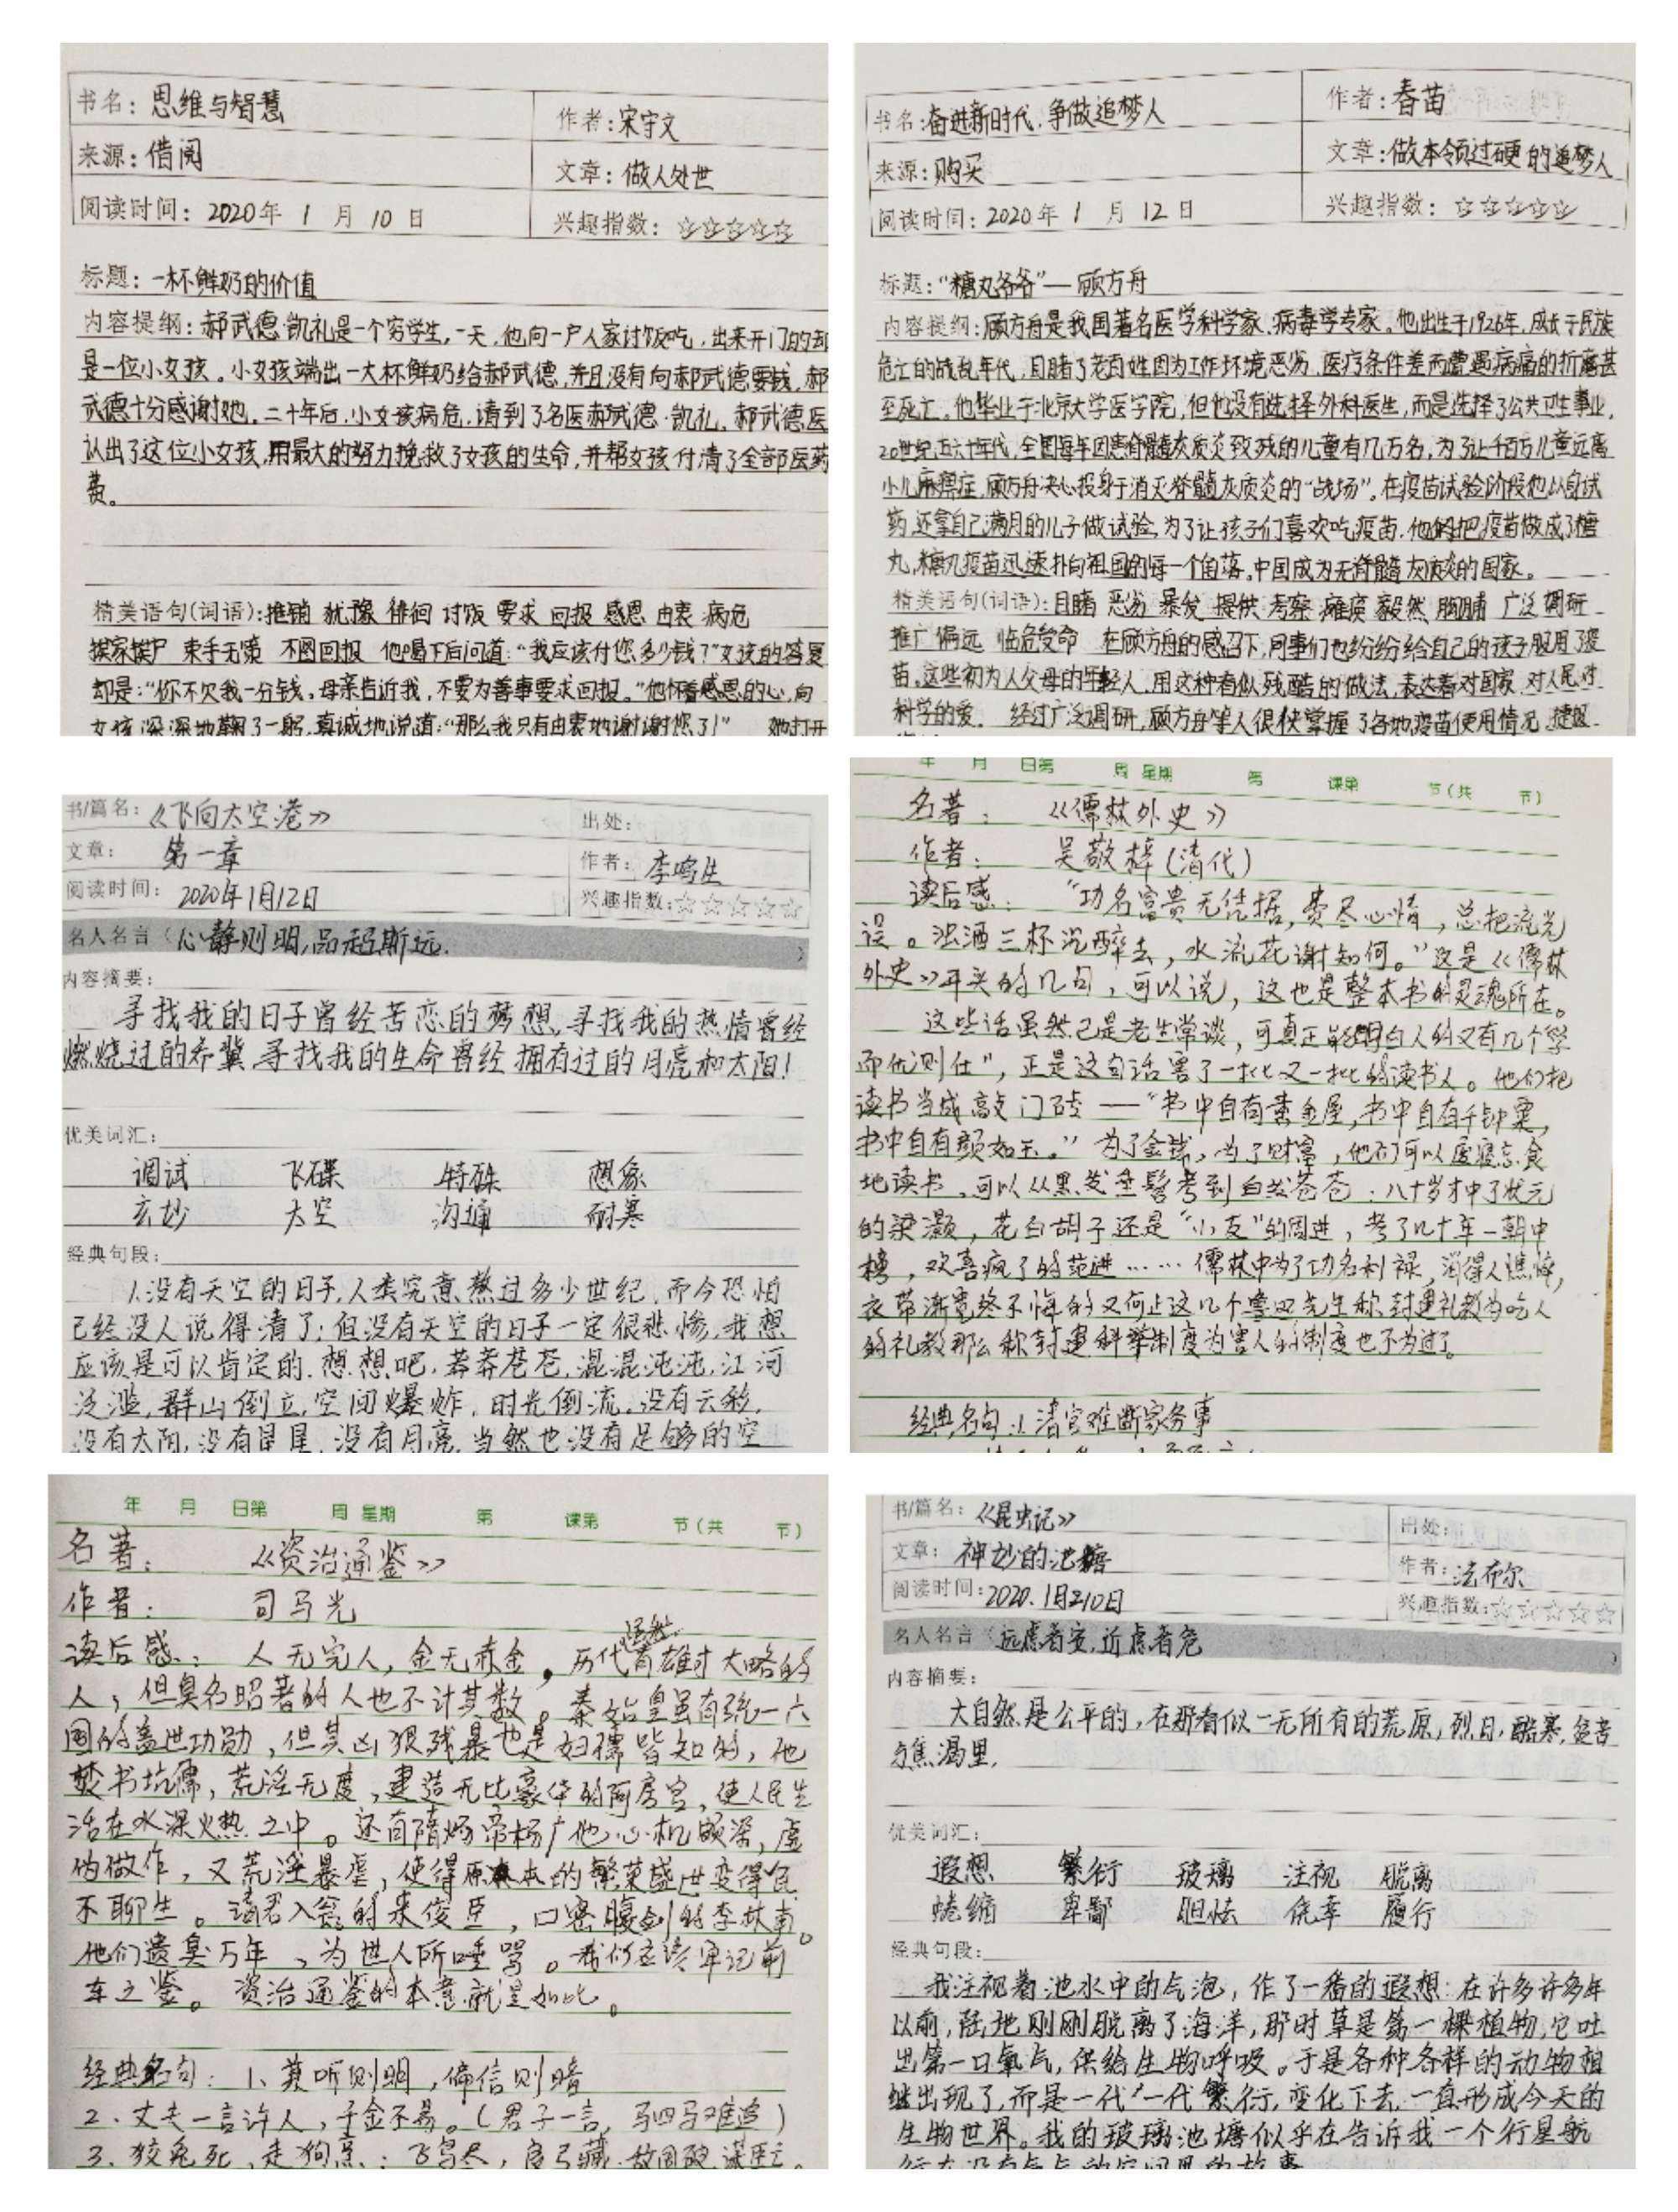 书名：思维与智慧
作者：宋守文
来源：借阅
文章：做人处世
阅读时间：2020年 1 月 10 日
兴趣指数：☆☆☆☆☆
标题：一杯鲜奶的价值
内容提纲：郝武德·凯礼是一个穷学生，一天，他向一户人家讨饭吃，出来开门的却
是一位小女孩。小女孩端出一大杯鲜奶给郝武德，并且没有向郝武德要钱，郝
武德十分感谢她。二十年后，小女孩病危，请到了名医郝武德·凯礼，郝武德医
认出了这位小女孩，用最大的努力挽救了女孩的生命，并帮女孩付清了全部医药
费。
精美语句(词语)：推销 犹豫 徘徊 讨饭 要求 回报 感恩 由衷 病危
挨家挨户 束手无策 不图回报 他喝下后问道：“我应该付您多少钱？”女孩的答复
却是：“你不欠我一分钱，母亲告诉我，不要为善事要求回报。”他怀着感恩的心，向
女孩深深地鞠了一躬，真诚地说道：“那么我只有由衷地谢谢您了！” 她打开
书名：奋进新时代，争做追梦人
作者：春苗
来源：购买
文章：做本领过硬的追梦人
阅读时间：2020年 1 月 12 日
兴趣指数：☆☆☆☆☆
标题：“糖丸爷爷”—顾方舟
内容提纲：顾方舟是我国著名医学科学家、病毒学专家。他出生于1926年，成长于民族
危亡的战乱年代，目睹了老百姓因为工作环境恶劣、医疗条件差而遭遇病痛的折磨甚
至死亡。他毕业于北京大学医学院，但他没有选择外科医生，而是选择了公共卫生事业，
20世纪五六十年代，全国每年因患脊髓灰质炎致残的儿童有几万名，为了让千百万儿童远离
小儿麻痹症，顾方舟决心投身于消灭脊髓灰质炎的“战场”。在疫苗试验阶段他以身试
药，还拿自己满月的儿子做试验，为了让孩子们喜欢吃疫苗，他们把疫苗做成了糖
丸，糖丸疫苗迅速扑向祖国的每一个角落，中国成为无脊髓灰质炎的国家。
精美语句(词语)：目睹 恶劣 暴发 提供 考察 瘫痪 毅然 胸脯 广泛 调研
推广 偏远 临危受命 在顾方舟的感召下，同事们也纷纷给自己的孩子服用了疫
苗，这些初为人父母的年轻人，用这种看似残酷的做法，表达着对国家、对人民、对
科学的爱。 经过广泛调研，顾方舟等人很快掌握了各地疫苗使用情况，捷报
书/篇名：《飞向太空港》
出处：
文章： 第一章
作者：李鸣生
阅读时间：2020年1月12日
兴趣指数：☆☆☆☆☆
名人名言（心静则明，品超斯远.）
内容摘要：
寻找我的日子曾经苦恋的梦想，寻找我的热情曾经
燃烧过的希冀，寻找我的生命曾经拥有过的月亮和太阳！
优美词汇：
调试 飞碟 特殊 想象
玄妙 太空 沟通 耐寒
经典句段：
1.没有天空的日子，人类究竟熬过多少世纪，而今恐怕
已经没人说得清了；但没有天空的日子一定很悲惨，我想
应该是可以肯定的.想想吧，莽莽苍苍，混混沌沌，江河
泛滥，群山倒立，空间爆炸，时光倒流，没有云彩，
没有太阳，没有星星，没有月亮，当然也没有足够的空
年 月 日第 周 星期 第 课第 节（共 节）
名著： 《儒林外史》
作者： 吴敬梓（清代）
读后感： “功名富贵无凭据，费尽心情，总把流光
误。浊酒三杯沉醉去，水流花谢知何。”这是《儒林
外史》开头的几句，可以说，这也是整本书的灵魂所在。
这些话虽然已是老生常谈，可真正能明白人的又有几个学
而优则仕”，正是这句话害了一批又一批的读书人。他们把
读书当成敲门砖——“书中自有黄金屋，书中自有千钟粟，
书中自有颜如玉。”为了金钱，为了财富，他们可以废寝忘食
地读书，可以从黑发垂髫考到白发苍苍：八十岁才中了状元
的梁灏，花白胡子还是“小友”的周进，考了几十年一朝中
榜，欢喜疯了的范进……儒林中为了功名利禄，消得人憔悴，
衣带渐宽终不悔的又何止这几个鲁四先生称封建礼教为吃人
的礼教那么称封建科举制度为害人的制度也不为过了。
经典名句：1.清官难断家务事
年 月 日第 周 星期 第 课第 节（共 节）
名著： 《资治通鉴》
作者： 司马光
读后感： 人无完人，金无赤金，历代有雄才大略的
人，但臭名昭著的人也不计其数。秦始皇虽有统一六
国的盖世功勋，但其凶狠残暴也是妇孺皆知的，他
焚书坑儒，荒淫无度，建造无比豪华的阿房宫，使人民生
活在水深火热之中。还有隋炀帝杨广他心机颇深，虚
伪做作，又荒淫暴虐，使得原本的繁荣盛世变得民
不聊生。请君入瓮的来俊臣，口蜜腹剑的李林甫。
他们遗臭万年，为世人所唾骂。我们应该牢记前
车之鉴。资治通鉴的本意就是如此。
经典名句：1、兼听则明，偏信则暗
2、丈夫一言许人，千金不易。（君子一言，驷马难追）
3、狡兔死，走狗烹；飞鸟尽，良弓藏，敌国破，谋臣亡。
书/篇名：《昆虫记》
出处：
文章： 神妙的池塘
作者：法布尔
阅读时间：2020.1月10日
兴趣指数：☆☆☆☆☆
名人名言（远虑者安，近虑者危）
内容摘要：
大自然是公平的，在那看似一无所有的荒原，烈日，酷寒，贫苦
与焦渴里.
优美词汇：
遐想 繁衍 玻璃 注视 脱离
蜷缩 卑鄙 胆怯 侥幸 履行
经典句段：
我注视着池水中的气泡，作了一番的遐想：在许多许多年
以前，陆地刚刚脱离了海洋，那时草是第一棵植物，它吐
出第一口氧气，供给生物呼吸。于是各种各样的动物相
继出现了，而是一代一代繁衍，变化下去，一直形成今天的
生物世界。我的玻璃池塘似乎在告诉我一个行星航
行在没有氧气的空间里的故事